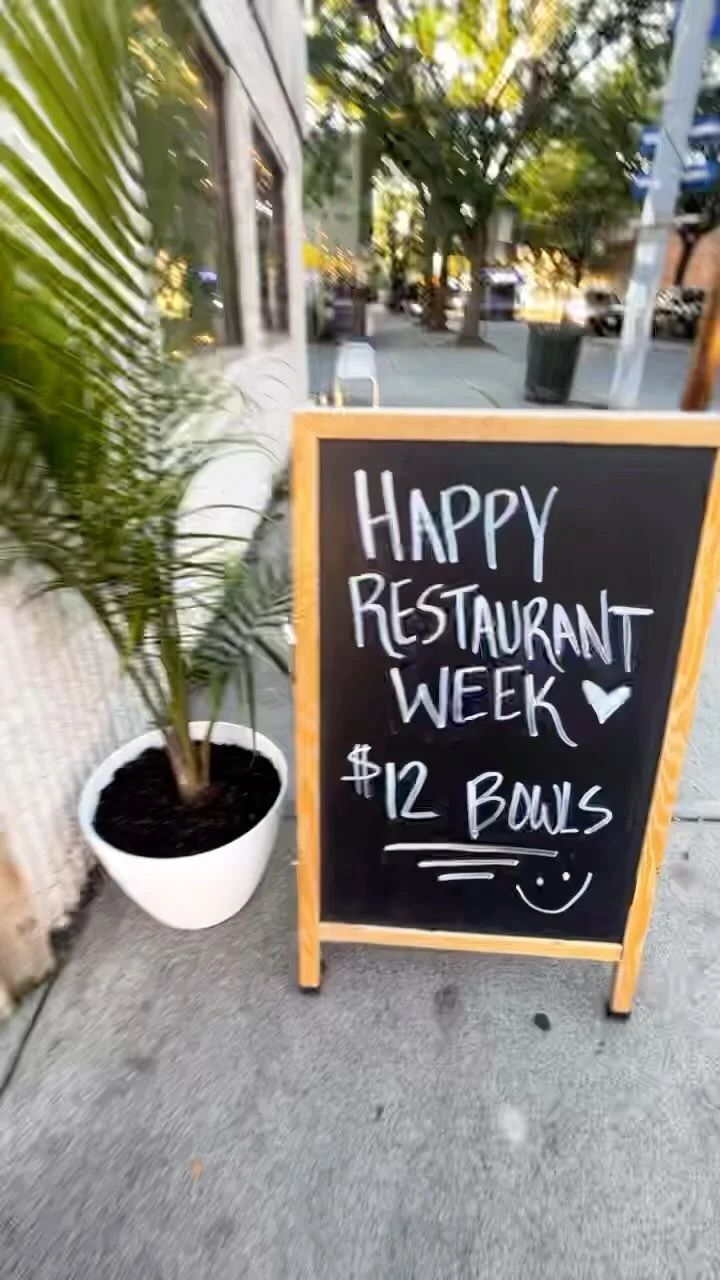 HAPPY
RESTAURANT
WEEK
$12 BOWLS